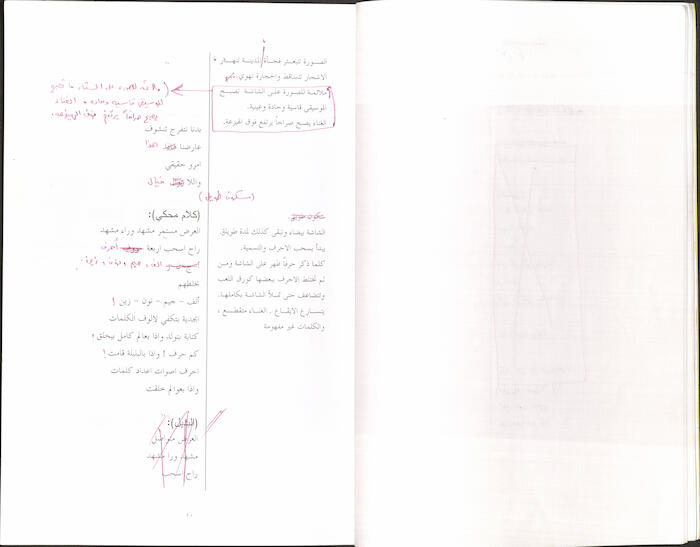 الصورة تتبعثر فجأة المدينة تنهار،
الاشجار تتساقط والحجارة تهوي.
ملائمة للصورة على الشاشة تصبح
الموسيقى قاسية وحادة وعنيفة.
الغناء يصبح صراخاً يرتفع فوق
ملائمة للصورة على الشاشة تصبح
الموسيقى قاسية وحادة، الغناء
يصبح صراخاً يرتفع فوق
بدنا نتفرج تنشوف
عارضنا هذا
امرو حقيقي
واللا خيال
(سكون طويل)
سكون طويل.
الشاشة بيضاء وتبقى كذلك لمدة طويلة.
يبدأ بسحب الاحرف والتسمية.
كلما ذكر حرفاً ظهر على الشاشة ومن
ثم تختلط الاحرف ببعضها كورق اللعب
وتتضاعف حتى تملأ الشاشة بكاملها.
يتسارع الايقاع .. الغناء متقطع،
والكلمات غير مفهومة
(كلام محكي):
العرض مستمر مشهد وراء مشهد
راح اسحب اربعة أحرف
الف وجيم ونون وزين
بخلطهم
ألف - جيم - نون - زين !
ابجدية بتكفي لالوف الكلمات
كتابة بتولد واذا بعالم كامل بيخلق؛
كم حرف ! واذا بالبلبلة قامت !
احرف اصوات اعداد كلمات
واذا بعوالم خلقت
العرض متواصل
مشهد ورا مشهد
راح اسحب
١٠